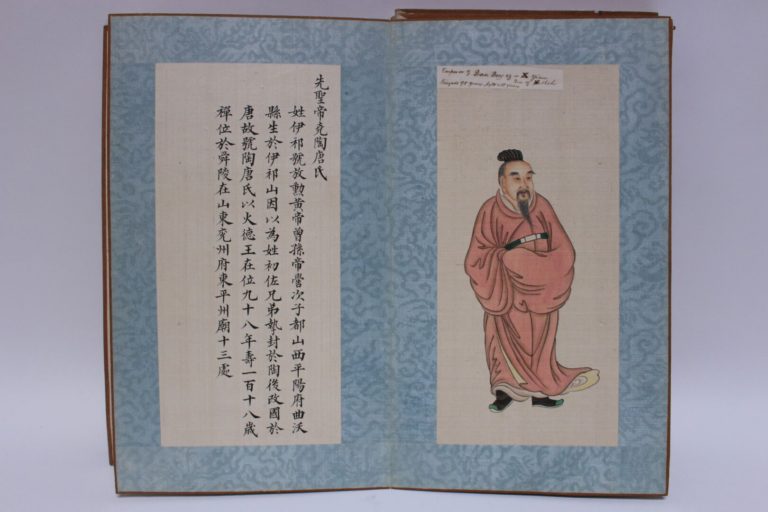 先聖帝堯陶唐氏
姓伊祁號放勳黃帝曾孫帝嚳次子都山西平陽府曲沃
縣生於伊祁山因以為姓初佐兄弟摯封於陶後改國於
唐故號陶唐氏以火德王在位九十八年壽一百十八歲
禪位於舜陵在山東兗州府東平州廟十三處
Emperor
Reigned 98 years